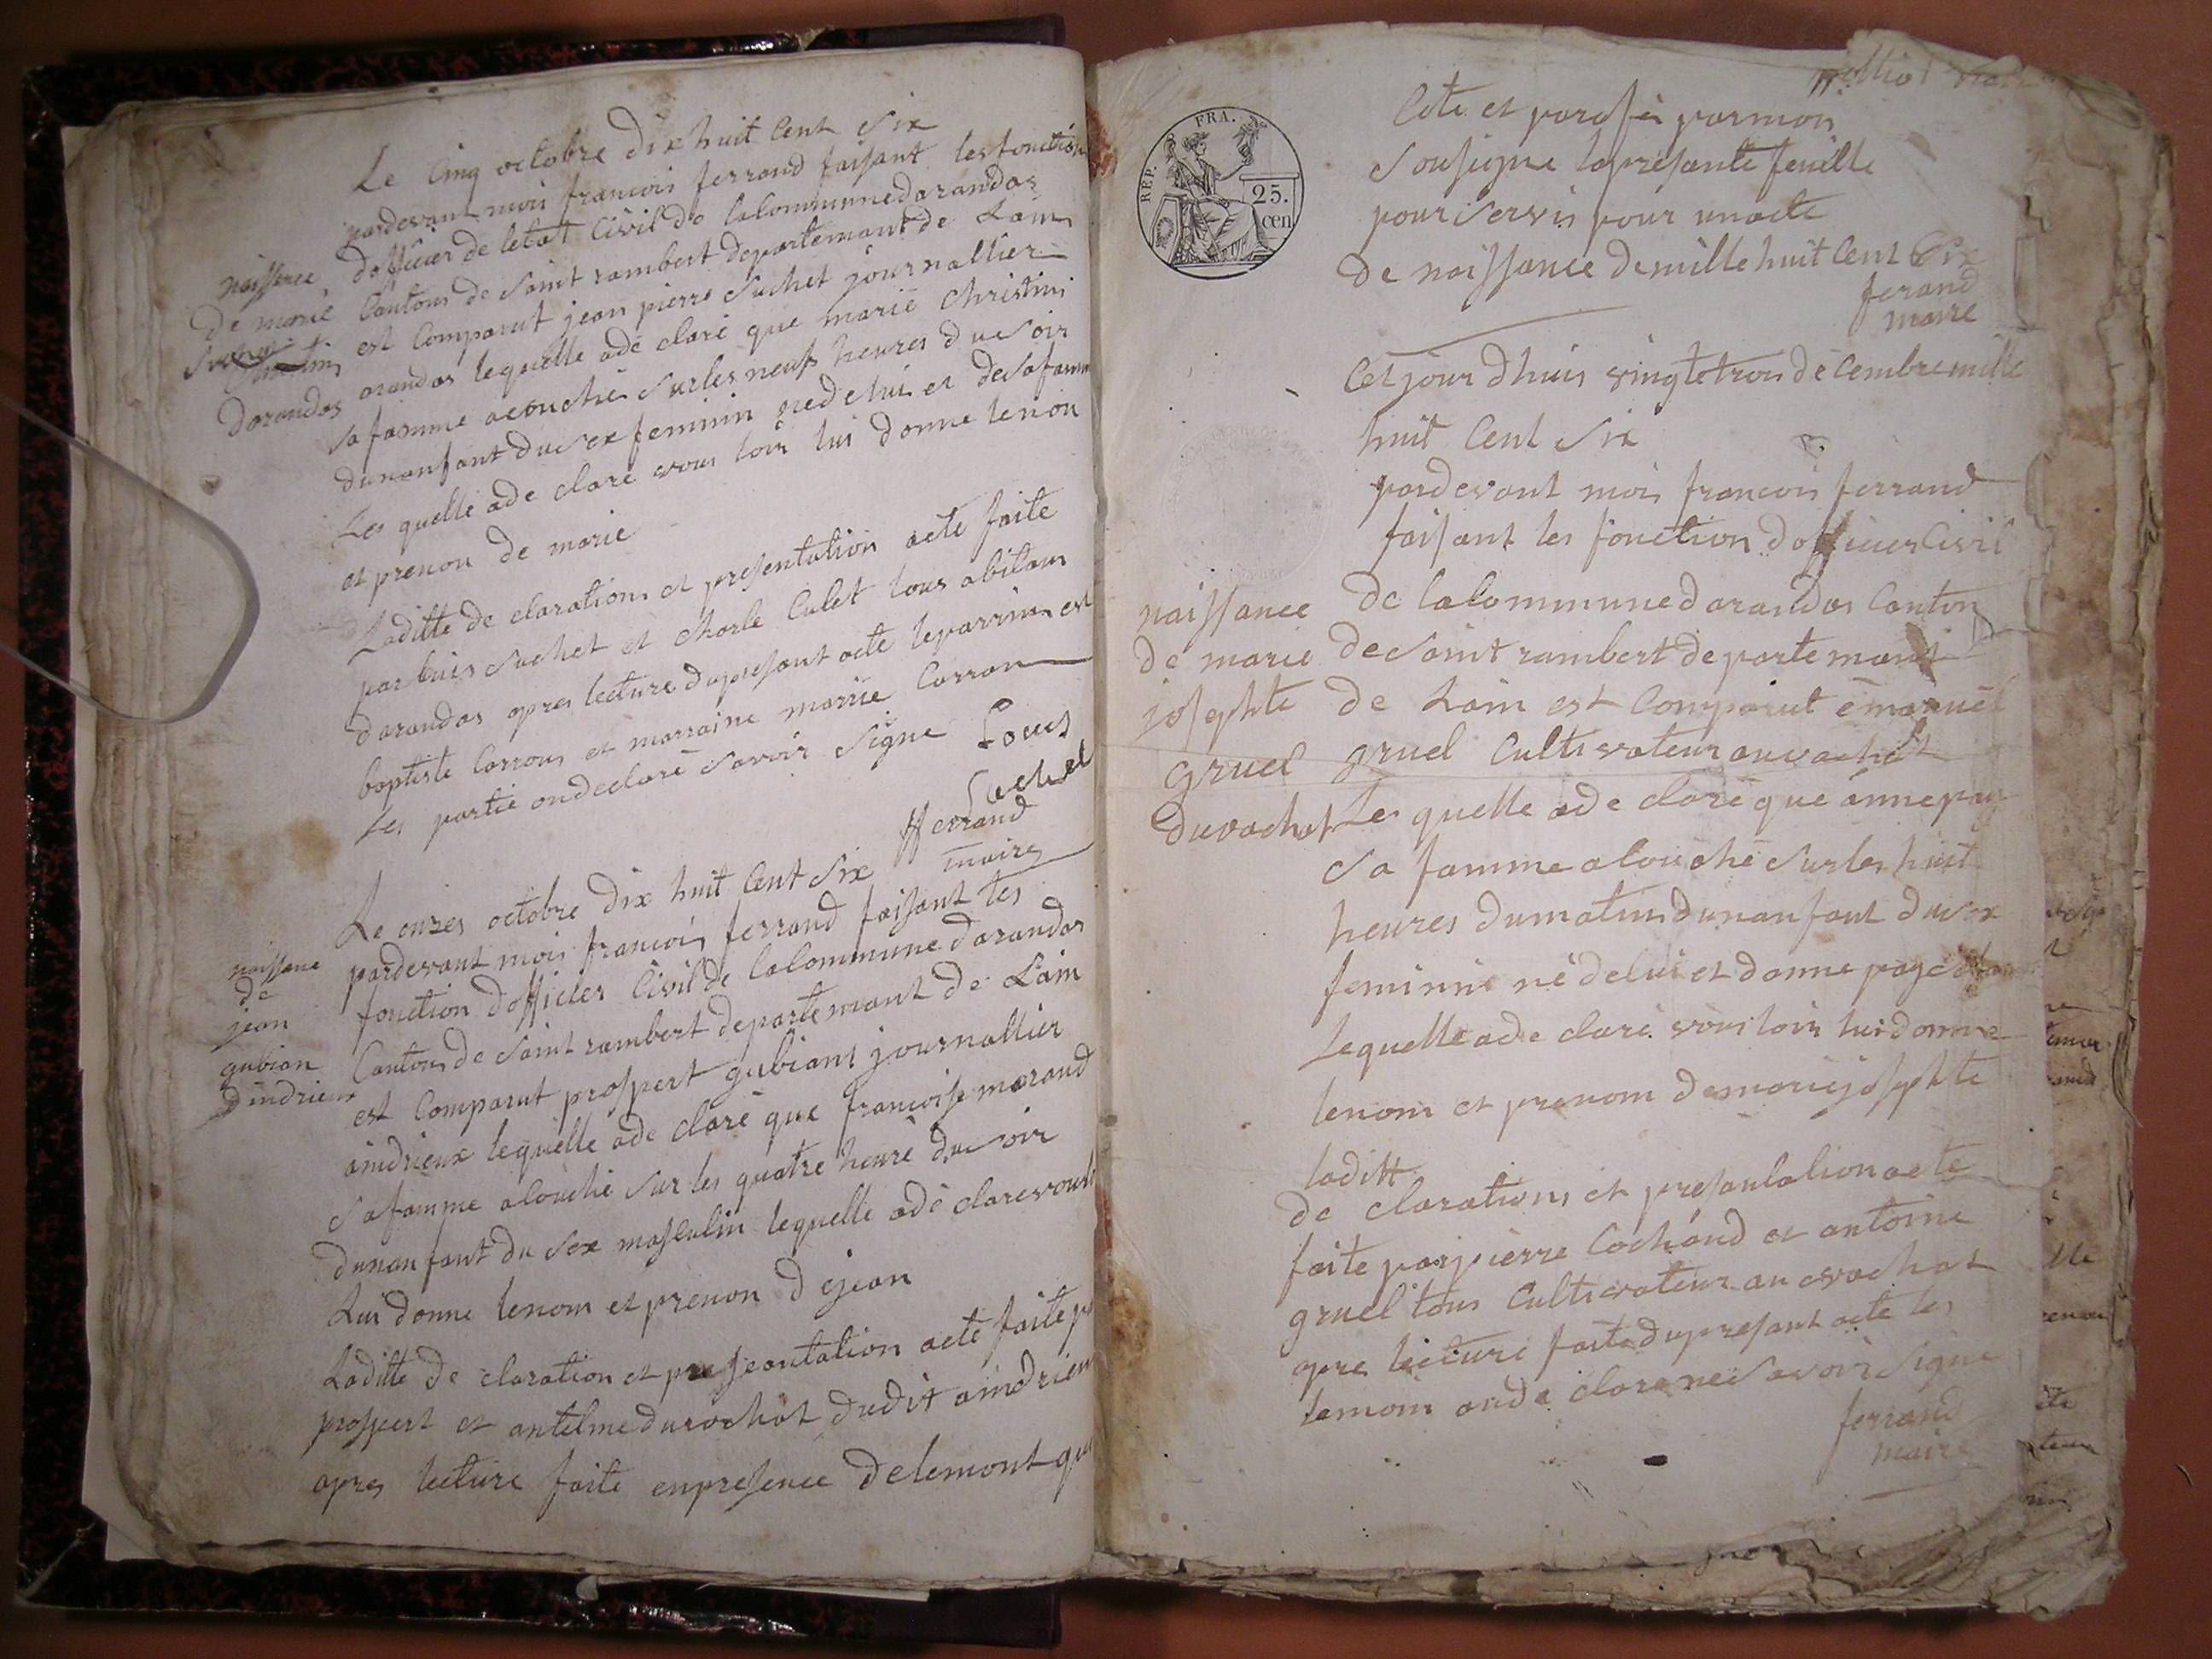 Le Cinq octobre dix huit Cent Six
pardevant moi francois ferrand faisant les fonction
naissance dofficier de letat Civil de lacommune darandas
de marie Cantons de Saint rambert departemant de Lain
Suchet est Comparut jean pierre Suchet journallier
darandas arandas lequelle ade clarè que marie Christini
Sa famme acouchè Surles neufs heures du Soir
dunanfant du Sex feminin
Les quelle ade clarè vous loir lui donne lenon
et prenon de marie
Laditte de claration et presentation acte faite
par louis Suchet et Charle Culet tous abitans
darandas apres lecture dupresant acte leparrins est
baptiste Carrons et marraine marie Carron
Les partie ondeclarè Savoir Signe Louis
Suchet
fferrand
maire
Le onzes octobre dix huit Cent Six
pardevant moi francois ferrand faisant les
naissance
de
jean
gubian
dindrieux
fonction dofficier Civil de lacommune darandas
Cantons de Saint rambert departemant de Lain
est Comparut prospert gubiant journallier
aindrieux lequelle ade clarè que francoise morand
Sa famme alouchè Sur les quatre heure du Soir
dunanfant du Sex masculin lequelle ade clare
Lui donne lenom et prenon dejean
Laditte de claration et presentation acte faite
prospert et antelme durochat dudit aindrieux
apres lecture faite enpresence delemont
Cote et parafè parmoi
Sousigne lapresante feuille
pour Servir pour unacte
de naissance demille huit Cent Six
ferand
maire
REP. FRA.
25.
cen
Cet jour dhuis vingtetrois dècembre mille
huit Cent Six
pardevant moi francois ferrand
faisant les fonction dofficier Civil
naissance de lacommune darandas Canton
de marie de Saint rambert departemant
josephte de Lain est Comparut èmanuel
gruel gruel Cultivateur auvachat
duvachat Les quelle ade clarè que anne pay
Sa famme alouchè Surles huit
heures dumatin dunanfant du Sex
feminin nè delui et danne
Lequelle ade clarè vous loir lui donne
lenom et prenom de marie josephte
laditt
de clarations et presantation acte
faite par pierre Cochand et antoine
gruel tous Cultivateur au vachat
apre lecture faite dupresant acte les
temoin onde clare nes avoir Signe
ferrand
maire